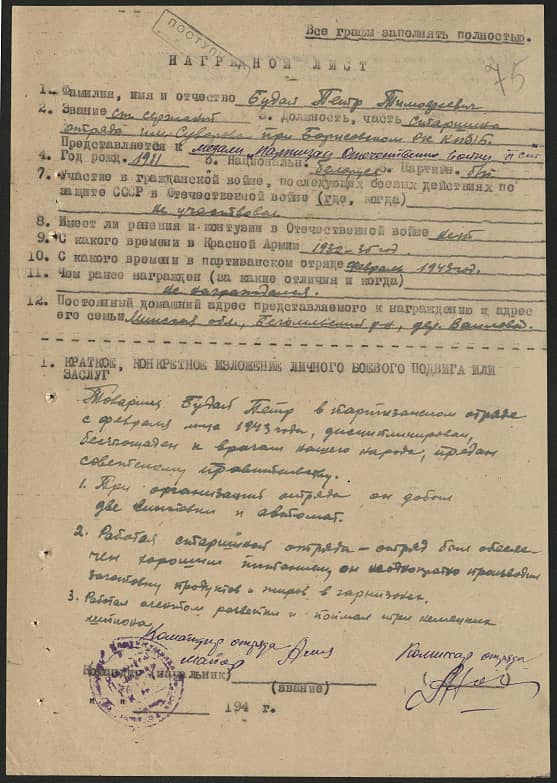 ПОСТУПИЛ
Все графы заполнять полностью.
75
НАГРАДНОЙ ЛИСТ
1. Фамилия, имя и отчество Будай Петр Тимофеевич
2. Звание ст. сержант 3. Должность, часть старшина
отряда им. Суворова при Борисовском РК КП(б)Б.
Представляется к медали партизан Отечественной войны II ст.
4. Год рожд. 1911 5. Национальн. белорус 6. Партийн. б/п
7. Участие в гражданской войне, последующих боевых действиях по
защите СССР в Отечественной войне (где, когда)
не участвовал
8. Имеет ли ранения и контузии в Отечественной войне нет
9. С какого времени в Красной Армии 1932-35 год.
10. С какого времени в партизанском отряде февраль 1943 год.
11. Чем ранее награжден (за какие отличия и когда)
не награждался.
12. Постоянный домашний адрес представляемого к награждению и адрес
его семьи Минская обл., Бегомльский р-н, дер.
1. КРАТКОЕ, КОНКРЕТНОЕ ИЗЛОЖЕНИЕ ЛИЧНОГО БОЕВОГО ПОДВИГА ИЛИ
ЗАСЛУГ
Товарищ Будай Петр в партизанском отряде
с февраля м-ца 1943 года, дисциплинирован,
беспощаден к врагам нашего народа, предан
советскому правительству.
1. При организации отряда он добыл
две винтовки и автомат.
2. Работая старшиной отряда – отряд был обеспе-
чен хорошим питанием, он неоднократно производил
заготовку продуктов и жиров в гарнизонах.
3. Работал агентом разведки и поймал три немецких
шпиона.
Командир отряда
майор
Комиссар отряда
Командир (начальник)
(звание)
194 г.